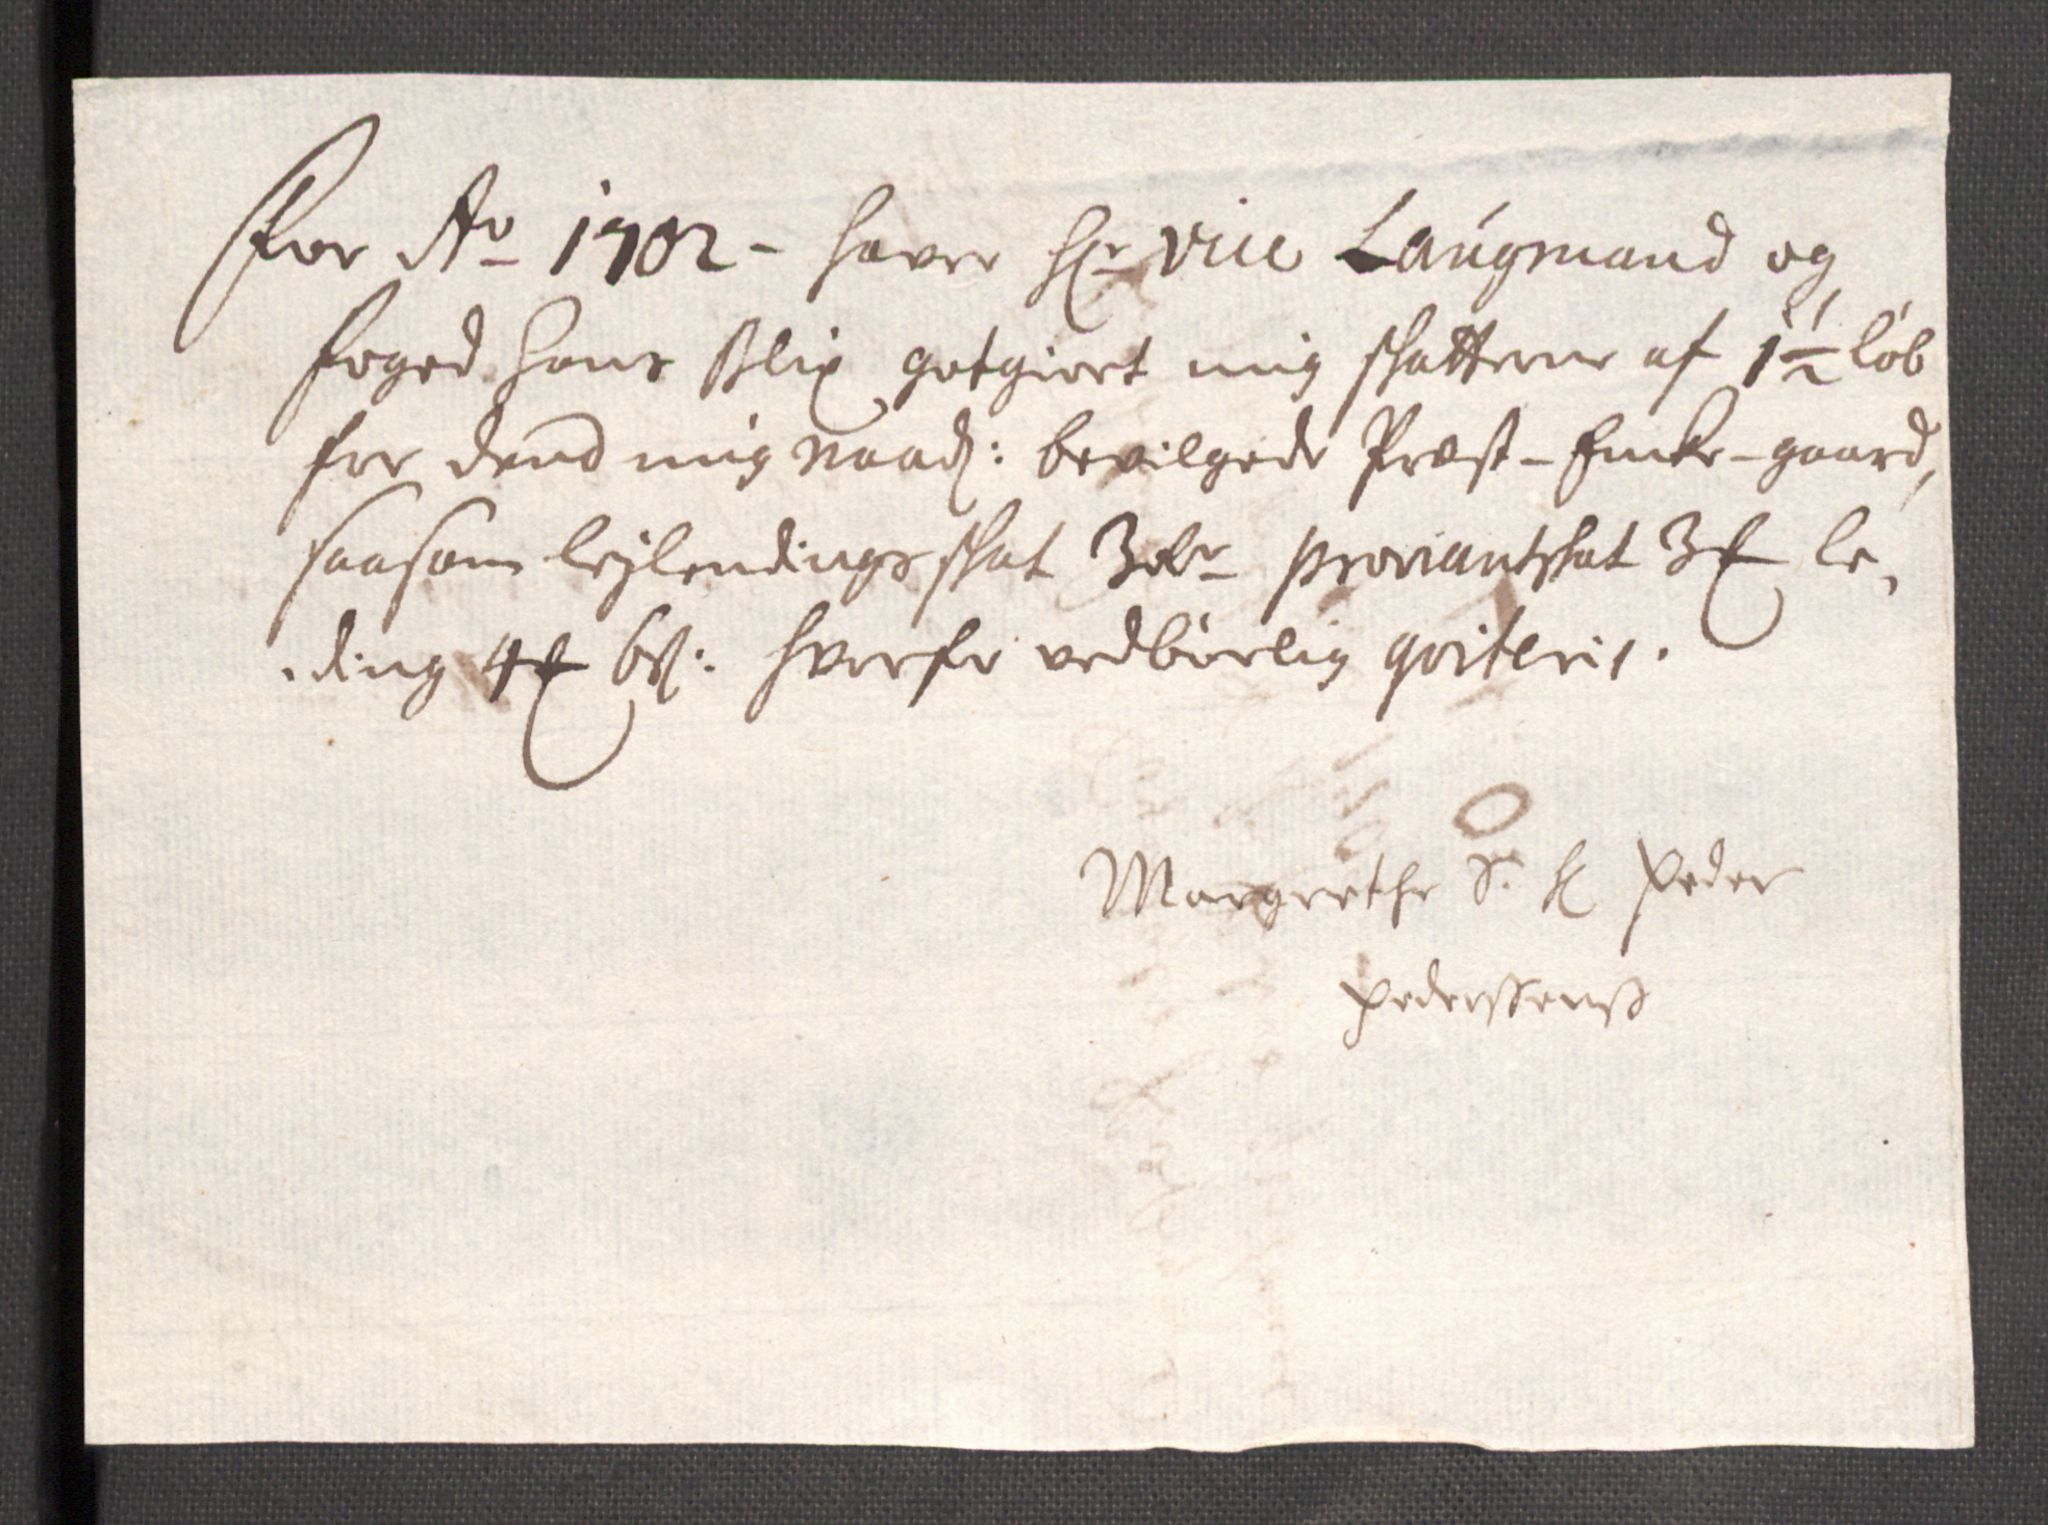 For Ao 1702 - haver Hr Vice Laugmand og
foged Hans Blix gotgiort mig schatterne af 1½ løb
for dend mig naad: bevilgede Præst-Encke-gaard,
saasom leylendings schat 3 dr proviantschat 3 ₰ le,
.ding 4 ₰ 6 β: hvorfor vedbørlig qviteris.
Margrethe S. H Peder
Pederssens